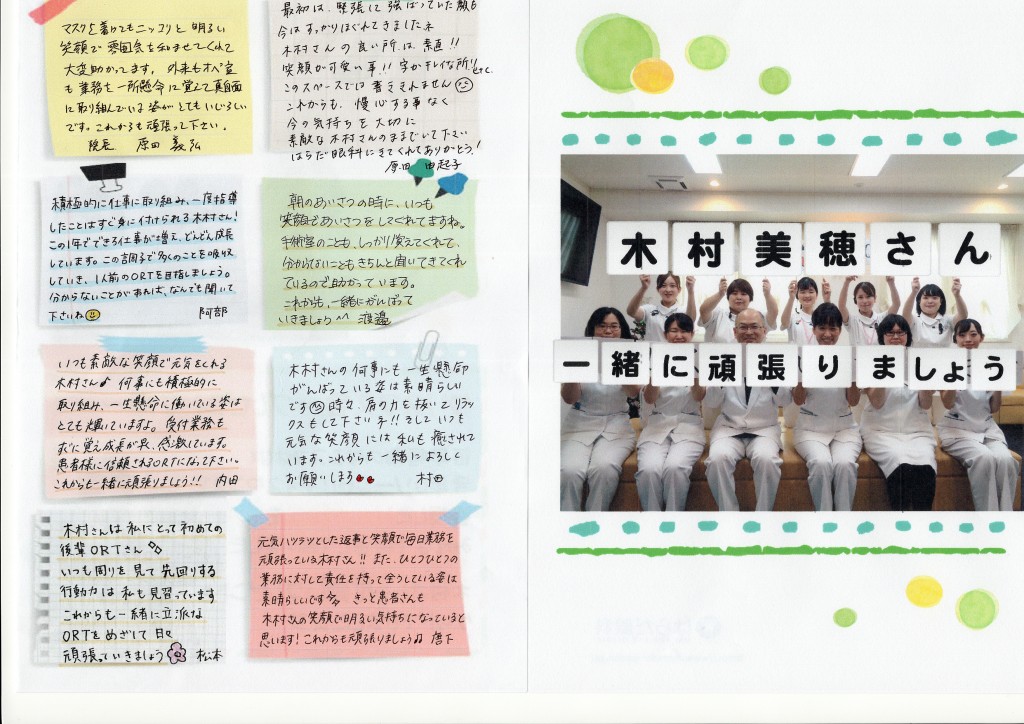 マスクを着けてもニッコリと明るい
笑顔で雰囲気を和ませてくれて
大変助かってます。外来もオペ室
も業務を一所懸命に覚えて真面目
に取り組んでいる姿がとてもいじらしい
です。これからも頑張って下さい。
院長 原田 義弘
最初は、緊張して強ばっていた顔も
今はすっかりほぐれてきましたネ
木村さんの良い所は、素直!!
笑顔が可愛い事!! 字がキレイな所!etc.
このスペースでは書ききれません
これからも、慢心する事なく
今の気持ちを大切に
素敵な木村さんのままでいて下さい
はらだ眼科にきてくれてありがとう!
原田 由起子
積極的に仕事に取り組み、一度指導
したことはすぐ身に付けられる木村さん!
この1年でできる仕事が増え、どんどん成長
しています。この調子で多くのことを吸収
していき、1人前のORTを目指しましょう。
分からないことがあれば、なんでも聞いて
下さいね 阿部
朝のあいさつの時に、いつも
笑顔であいさつをしてくれてますね。
手術室のことも、しっかり覚えてくれて、
分からないこともきちんと聞いてきてくれ
ているので助かっています。
これからも、一緒にがんばって
いきましょう^^ 渡邉
いつも素敵な笑顔で元気をくれる
木村さん♪ 何事にも積極的に
取り組み、一生懸命に働いている姿は
とても輝いていますよ。受付業務も
すぐに覚え成長が早く、感激しています。
患者様に信頼されるORTになって下さい。
これからも一緒に頑張りましょう!! 内田
木村さんの何事にも一生懸命
がんばっている姿は素晴らしい
です 時々、肩の力を抜いてリラッ
クスもして下さい手!! そしていつも
元気な笑顔には私も癒されて
います。これからも一緒によろしく
お願いします 村田
木村さんは私にとって初めての
後輩ORTさん
いつも周りを見て先回りする
行動力は私も見習っています
これからも一緒に立派な
ORTをめざして日々
頑張っていきましょう 松本
元気ハツラツとした返事と笑顔で毎日業務を
頑張っている木村さん!! また、ひとつひとつの
業務に対して責任を持って全うしている姿は
素晴らしいです きっと患者さんも
木村さんの笑顔で明るい気持ちになっていると
思います! これからも頑張りましょう♫ 唐下
木村美穂さん
一緒に頑張りましょう